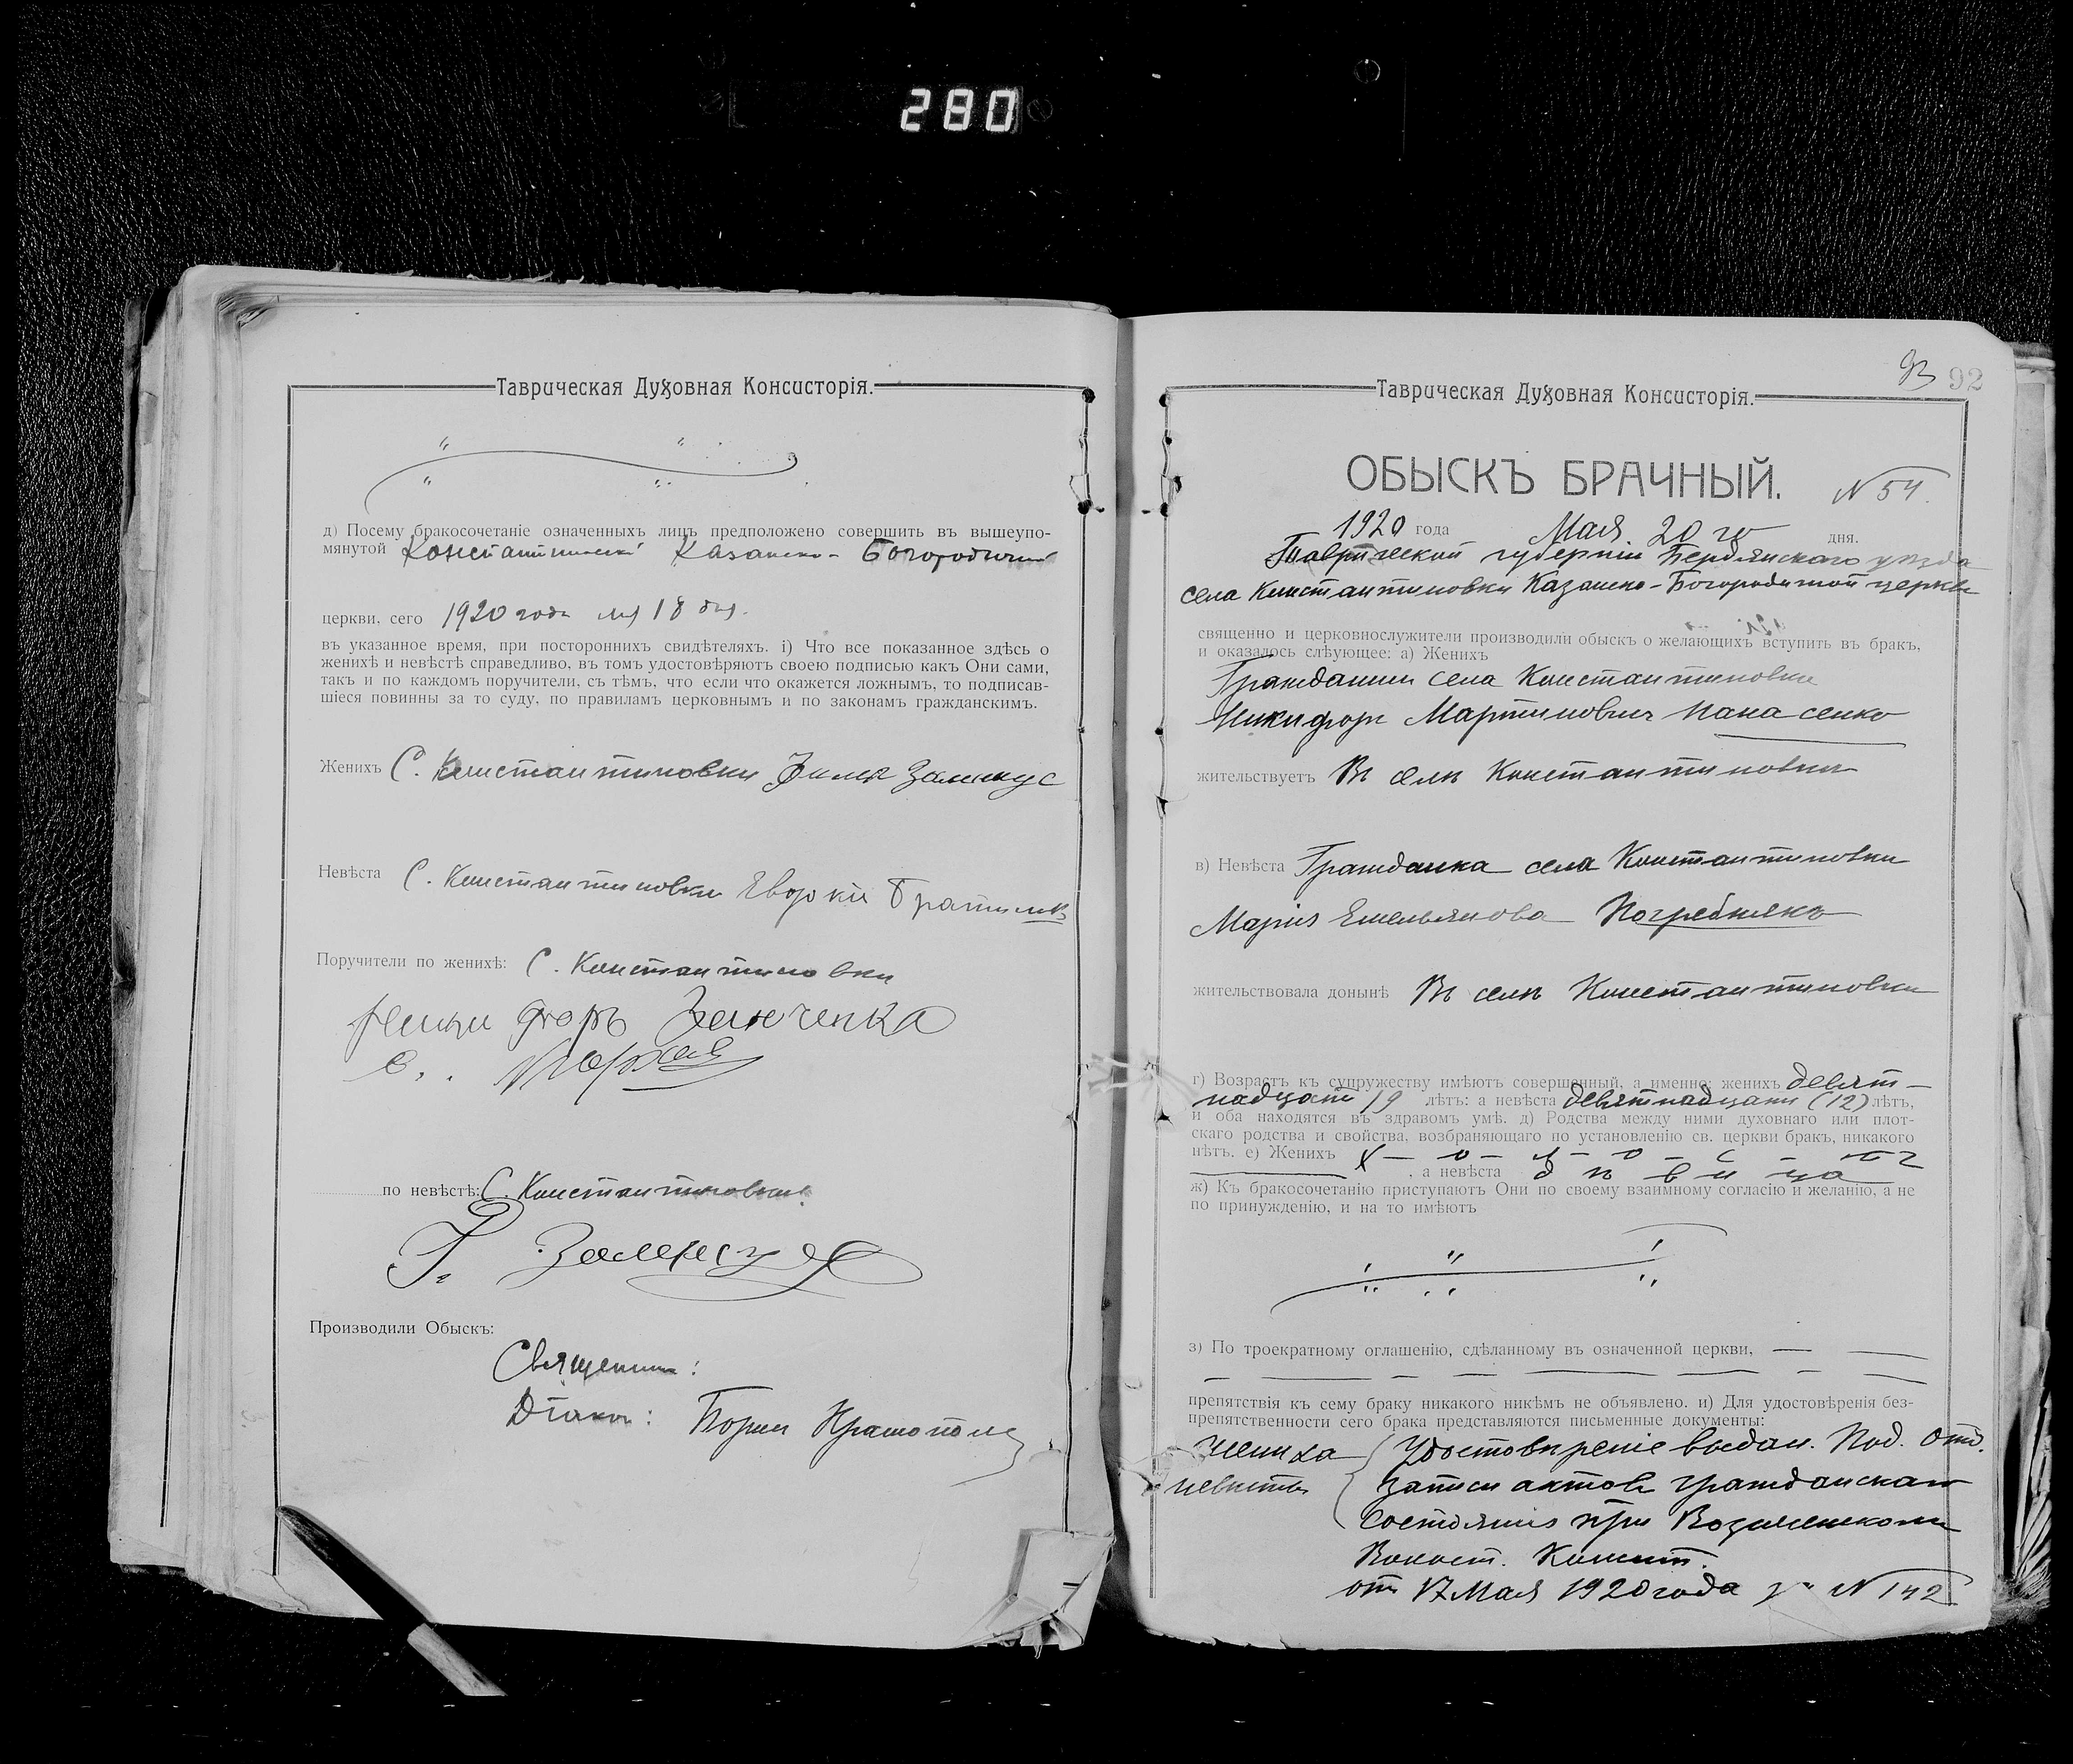 280
Таврическая Духовная Консисторія.
д) Посему бракосочетаніе означенныхъ лицъ предположено совершить въ вышеупо-
мянутой Казанско-Богородичной
церкви, сего 1920 года 18 дня.
въ указанное время, при постороннихъ свидѣтеляхъ. і) Что все показанное здѣсь о
женихѣ и невѣстѣ справедливо, въ томъ удостовѣряютъ своею подписью какъ Они сами,
такъ и по каждомъ поручители, съ тѣмъ, что если что окажется ложнымъ, то подписав-
шіеся повинны за то суду, по правиламъ церковнымъ и по законамъ гражданскимъ.
Женихъ С. Константиновки
Невѣста С. Константиновки
Поручители по женихѣ: С. Константиновки
по невѣстѣ: С. Константиновки
Производили Обыскъ:
Священникъ:
Діаконъ: Борис
93 92
Таврическая Духовная Консисторія.
ОБЫСКЪ БРАЧНЫЙ.
N 54.
1920 года Мая 20 го дня.
Таврической губерніи Бердянскаго уѣзда
села Константиновки Казанско-Богородичной церкви
священно и церковнослужители производили обыскъ о желающихъ вступить въ бракъ,
и оказалось слѣующее: а) Женихъ
Гражданин села Константиновки
Никифоръ Мартиновичъ Панасенко
жительствуетъ Въ селѣ Константиновки
в) Невѣста Гражданка села Константиновки
Марія Емельянова Погребнякъ
жительствовала донынѣ Въ селѣ Константиновки
г) Возрастъ къ супружеству имѣютъ совершенный, а именно: женихъ девят-
надцать 19 лѣтъ: а невѣста девятнадцати (12) лѣтъ,
и оба находятся въ здравомъ умѣ. д) Родства между ними духовнаго или плот-
скаго родства и свойства, возбраняющаго по установленію св. церкви бракъ, никакого
нѣтъ. е) Женихъ х - о - л - о - с - т
, а невѣста д ѣ в и ца
ж) Къ бракосочетанію приступаютъ Они по своему взаимному согласію и желанію, а не
по принужденію, и на то имѣютъ
з) По троекратному оглашенію, сдѣланному въ означенной церкви,
препятствія къ сему браку никакого никѣмъ не объявлено. и) Для удостовѣренія без-
препятственности сего брака представляются письменные документы:
жениха Удостовѣреніе выдан. Под. Отд.
невѣсты записи актовъ гражданскаго
состоянія при Вознесенскомъ
Волост. Комит.
отъ 17 Мая 1920 года за N 142